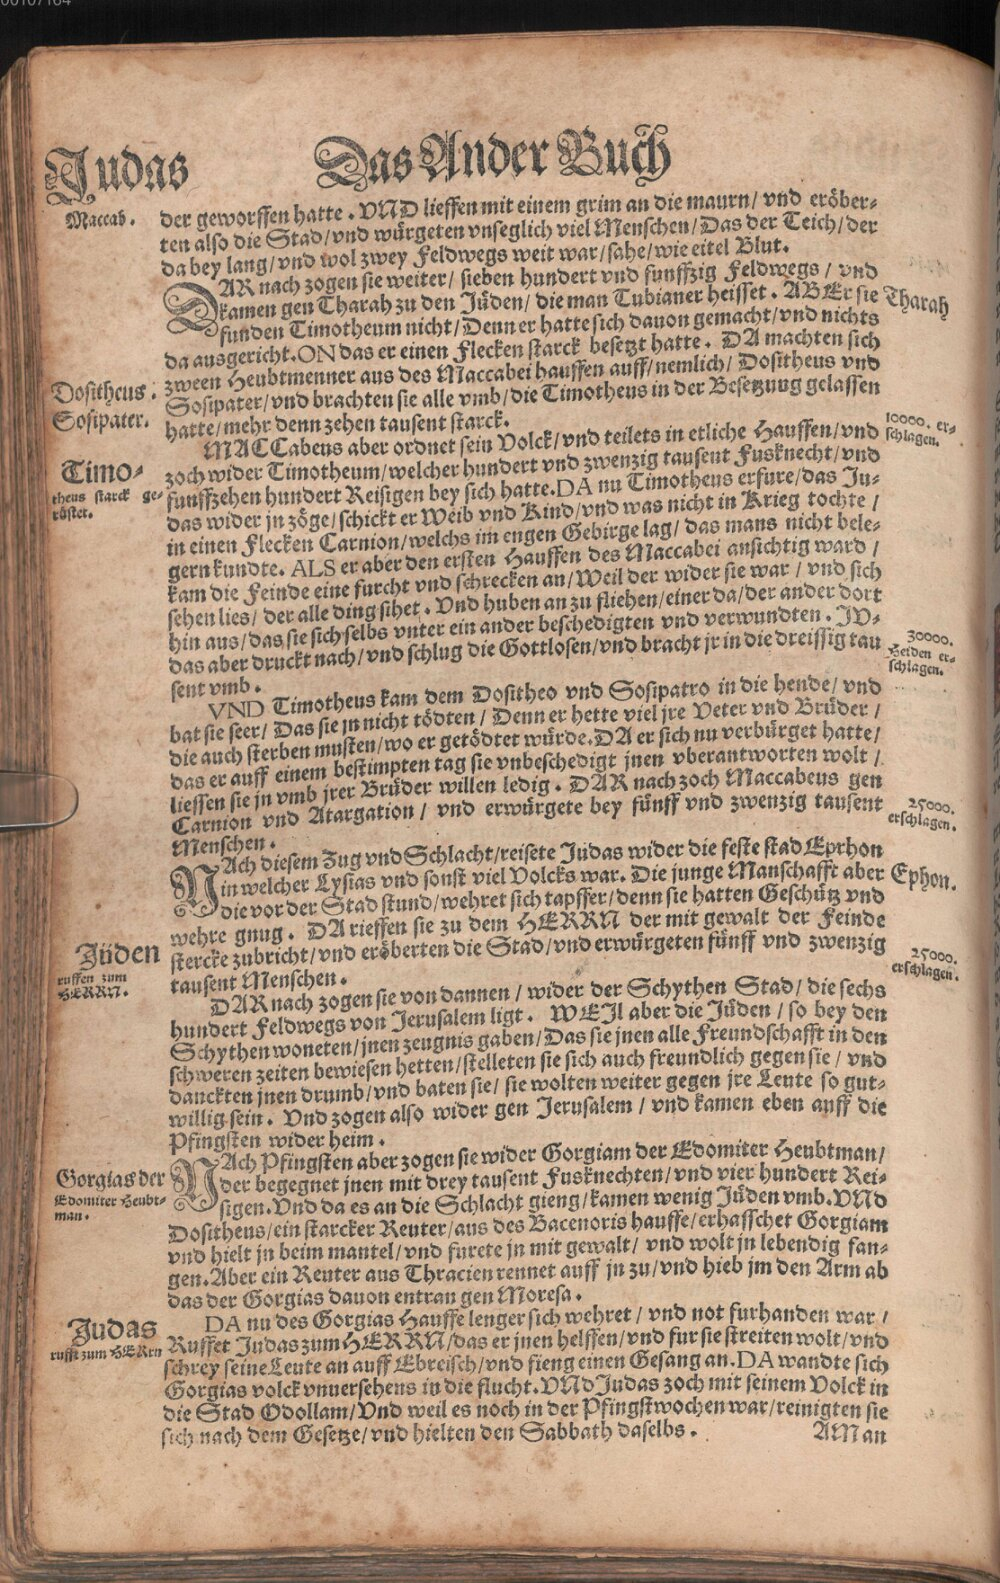 00107164
Judas
Das Ander Buch
Maccab.
der geworffen hatte. VND lieffen mit einem grim an die maurn/ vnd eröber-
ten also die Stad/vnd würgeten vnseglich viel Menschen/Das der Teich/der
da bey lang/vnd wol zwey Feldwegs weit war/sahe/wie eitel Blut.
DAR nach zogen sie weiter/ sieben hundert vnd funffzig Feldwegs / vnd
kamen gen Tharah zu den Jüden/ die man Tubianer heisset. ABEr sie
Tharah
funden Timotheum nicht/Denn er hatte sich dauon gemacht/vnd nichts
da ausgericht.ON das er einen Flecken starck besetzt hatte. DA machten sich
zween Heubtmenner aus des Maccabei hauffen auff/nemlich/ Dositheus vnd
Dositheus.
Sosipater/vnd brachten sie alle vmb/die Timotheus in der Besetzung gelassen
Sosipater.
hatte/mehr denn zehen tausent starck.
10000. er-
schlagen.
MACCabeus aber ordnet sein Volck/vnd teilets in etliche Hauffen/vnd
Timo-
theus starck ge-
röstet.
zoch wider Timotheum/welcher hundert vnd zwenzig tausent Fusknecht/vnd
funffzehen hundert Reisigen bey sich hatte.DA nu Timotheus erfure/das Ju-
das wider jn zöge/schickt er Weib vnd Kind/vnd was nicht in Krieg tochte /
in einen Flecken Carnion/welchs im engen Gebirge lag/ das mans nicht bele-
gern kundte. ALS er aber den ersten Hauffen des Maccabei ansichtig ward /
kam die Feinde eine furcht vnd schrecken an/Weil der wider sie war / vnd sich
sehen lies/ der alle ding sihet. Vnd huben an zu fliehen/einer da/der ander dort
hin aus/das sie sich selbs vnter ein ander beschedigten vnd verwundten. JV-
das aber druckt nach/vnd schlug die Gottlosen/vnd bracht jr in die dreissig tau
30000.
Heiden er-
schlagen.
sent vmb.
VND Timotheus kam dem Dositheo vnd Sosipatro in die hende/ vnd
bat sie seer/ Das sie jn nicht tödten / Denn er hette viel jre Veter vnd Brüder /
die auch sterben musten/wo er getödtet würde.DA er sich nu verbürget hatte/
das er auff einem bestimpten tag sie vnbeschedigt jnen vberantworten wolt /
liessen sie jn vmb jrer Brüder willen ledig. DAR nach zoch Maccabeus gen
Carnion vnd Atargation / vnd erwürgete bey fünff vnd zwenzig tausent
25000.
erschlagen.
Menschen.
NAch diesem Zug vnd Schlacht/reisete Judas wider die feste stad Ephron
in welcher Lysias vnd sonst viel Volcks war. Die junge Manschafft aber
Ephon.
die vor der Stad stund/wehret sich tapffer/denn sie hatten Geschütz vnd
wehre gnug. DA rieffen sie zu dem HERRN der mit gewalt der Feinde
Jüden
ruffen zum
HERRN.
stercke zubricht/vnd eröberten die Stad/vnd erwürgeten fünff vnd zwenzig
25000.
erschlagen.
tausent Menschen.
DAR nach zogen sie von dannen / wider der Schythen Stad/ die sechs
hundert Feldwegs von Jerusalem ligt. WEJl aber die Jüden / so bey den
Schythen woneten/jnen zeugnis gaben/Das sie jnen alle Freundschafft in den
schweren zeiten bewiesen hetten/stelleten sie sich auch freundlich gegen sie / vnd
danckten jnen drumb/vnd baten sie/ sie wolten weiter gegen jre Leute so gut-
willig sein. Vnd zogen also wider gen Jerusalem / vnd kamen eben auff die
Pfingsten wider heim.
NAch Pfingsten aber zogen sie wider Gorgiam der Edomiter Heubtman/
Gorgias der
Edomiter Heubt-
man.
der begegnet jnen mit drey tausent Fusknechten/vnd vier hundert Rei-
sigen. Vnd da es an die Schlacht gieng/kamen wenig Jüden vmb.VNd
Dositheus/ein starcker Reuter/aus des Bacenoris hauffe/erhasschet Gorgiam
vnd hielt jn beim mantel/vnd furete jn mit gewalt/ vnd wolt jn lebendig fan-
gen.Aber ein Reuter aus Thracien rennet auff jn zu/vnd hieb jm den Arm ab
das der Gorgias dauon entran gen Moresa.
DA nu des Gorgias Hauffe lenger sich wehret / vnd not furhanden war /
Judas
rufft zum HERrn
Ruffet Judas zum HERRN/das er jnen helffen/vnd fur sie streiten wolt/vnd
schrey seine Leute an auff Ebreisch/vnd fieng einen Gesang an.DA wandte sich
Gorgias volck vnuersehens in die flucht.VNd Judas zoch mit seinem Volck in
die Stad Odollam/Vnd weil es noch in der Pfingstwochen war/reinigten sie
sich nach dem Gesetze/vnd hielten den Sabbath daselbs.
AM an